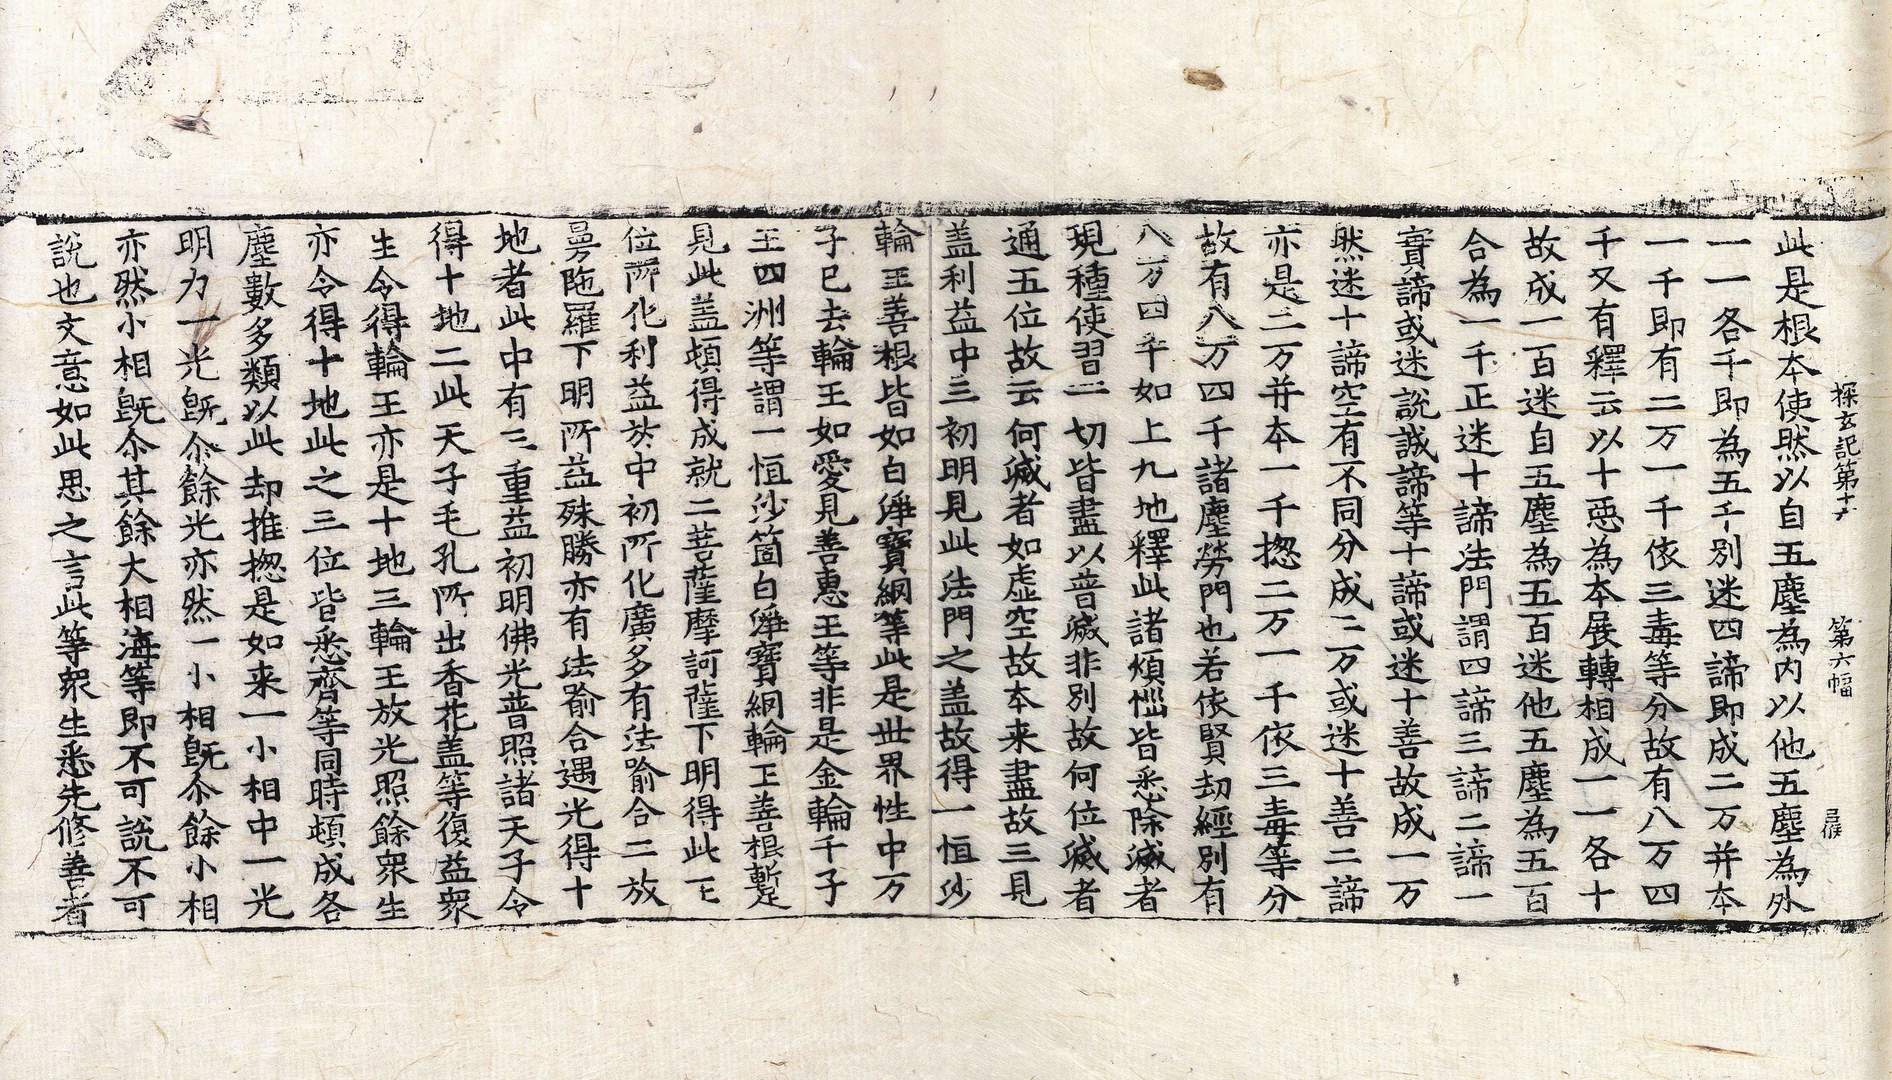 探玄記第十六 第六幅
此是根本使然以自五塵為內以他五塵為外
一一各千即為五千別迷四諦即成二万并本
一千即有二万一千依三毒等分故有八万四
千又有釋云以十惡為本展轉相成一一各十
故成一百迷自五塵為五百迷他五塵為五百
合為一千正迷十諦法門謂四諦三諦二諦一
實諦或迷說誠諦等十諦或迷十善故成一万
然迷十諦空有不同分成二万或迷十善二諦
亦是二万并本一千揔二万一千依三毒等分
故有八万四千諸塵勞門也若依賢劫經別有
八万四千如上九地釋此諸煩惱皆悉除滅者
現種使習一切皆盡以普滅非別故何位滅者
通五位故云何滅者如虛空故本来盡故三見
盖利益中三初明見此法門之盖故得一恒沙
輪王善根皆如白淨寶網等此是世界性中万
子已去輪王如愛見善惠王等非是金輪千子
王四洲等謂一恒沙箇白淨寶網輪王善根蹔
見此盖頓得成就二菩薩摩訶薩下明得此王
位所化利益於中初所化廣多有法喻合二放
曼陁羅下明所益殊勝亦有法喻合遇光得十
地者此中有三重益初明佛光普照諸天子令
得十地二此天子毛孔所出香花盖等復益衆
生令得輪王亦是十地三輪王放光照餘衆生
亦令得十地此之三位皆悉齊等同時頓成各
塵數多類以此却推揔是如来一小相中一光
明力一光旣尒餘光亦然一小相旣尒餘小相
亦然小相旣尒其餘大相海等即不可說不可
說也文意如此思之言此等衆生悉先修善者